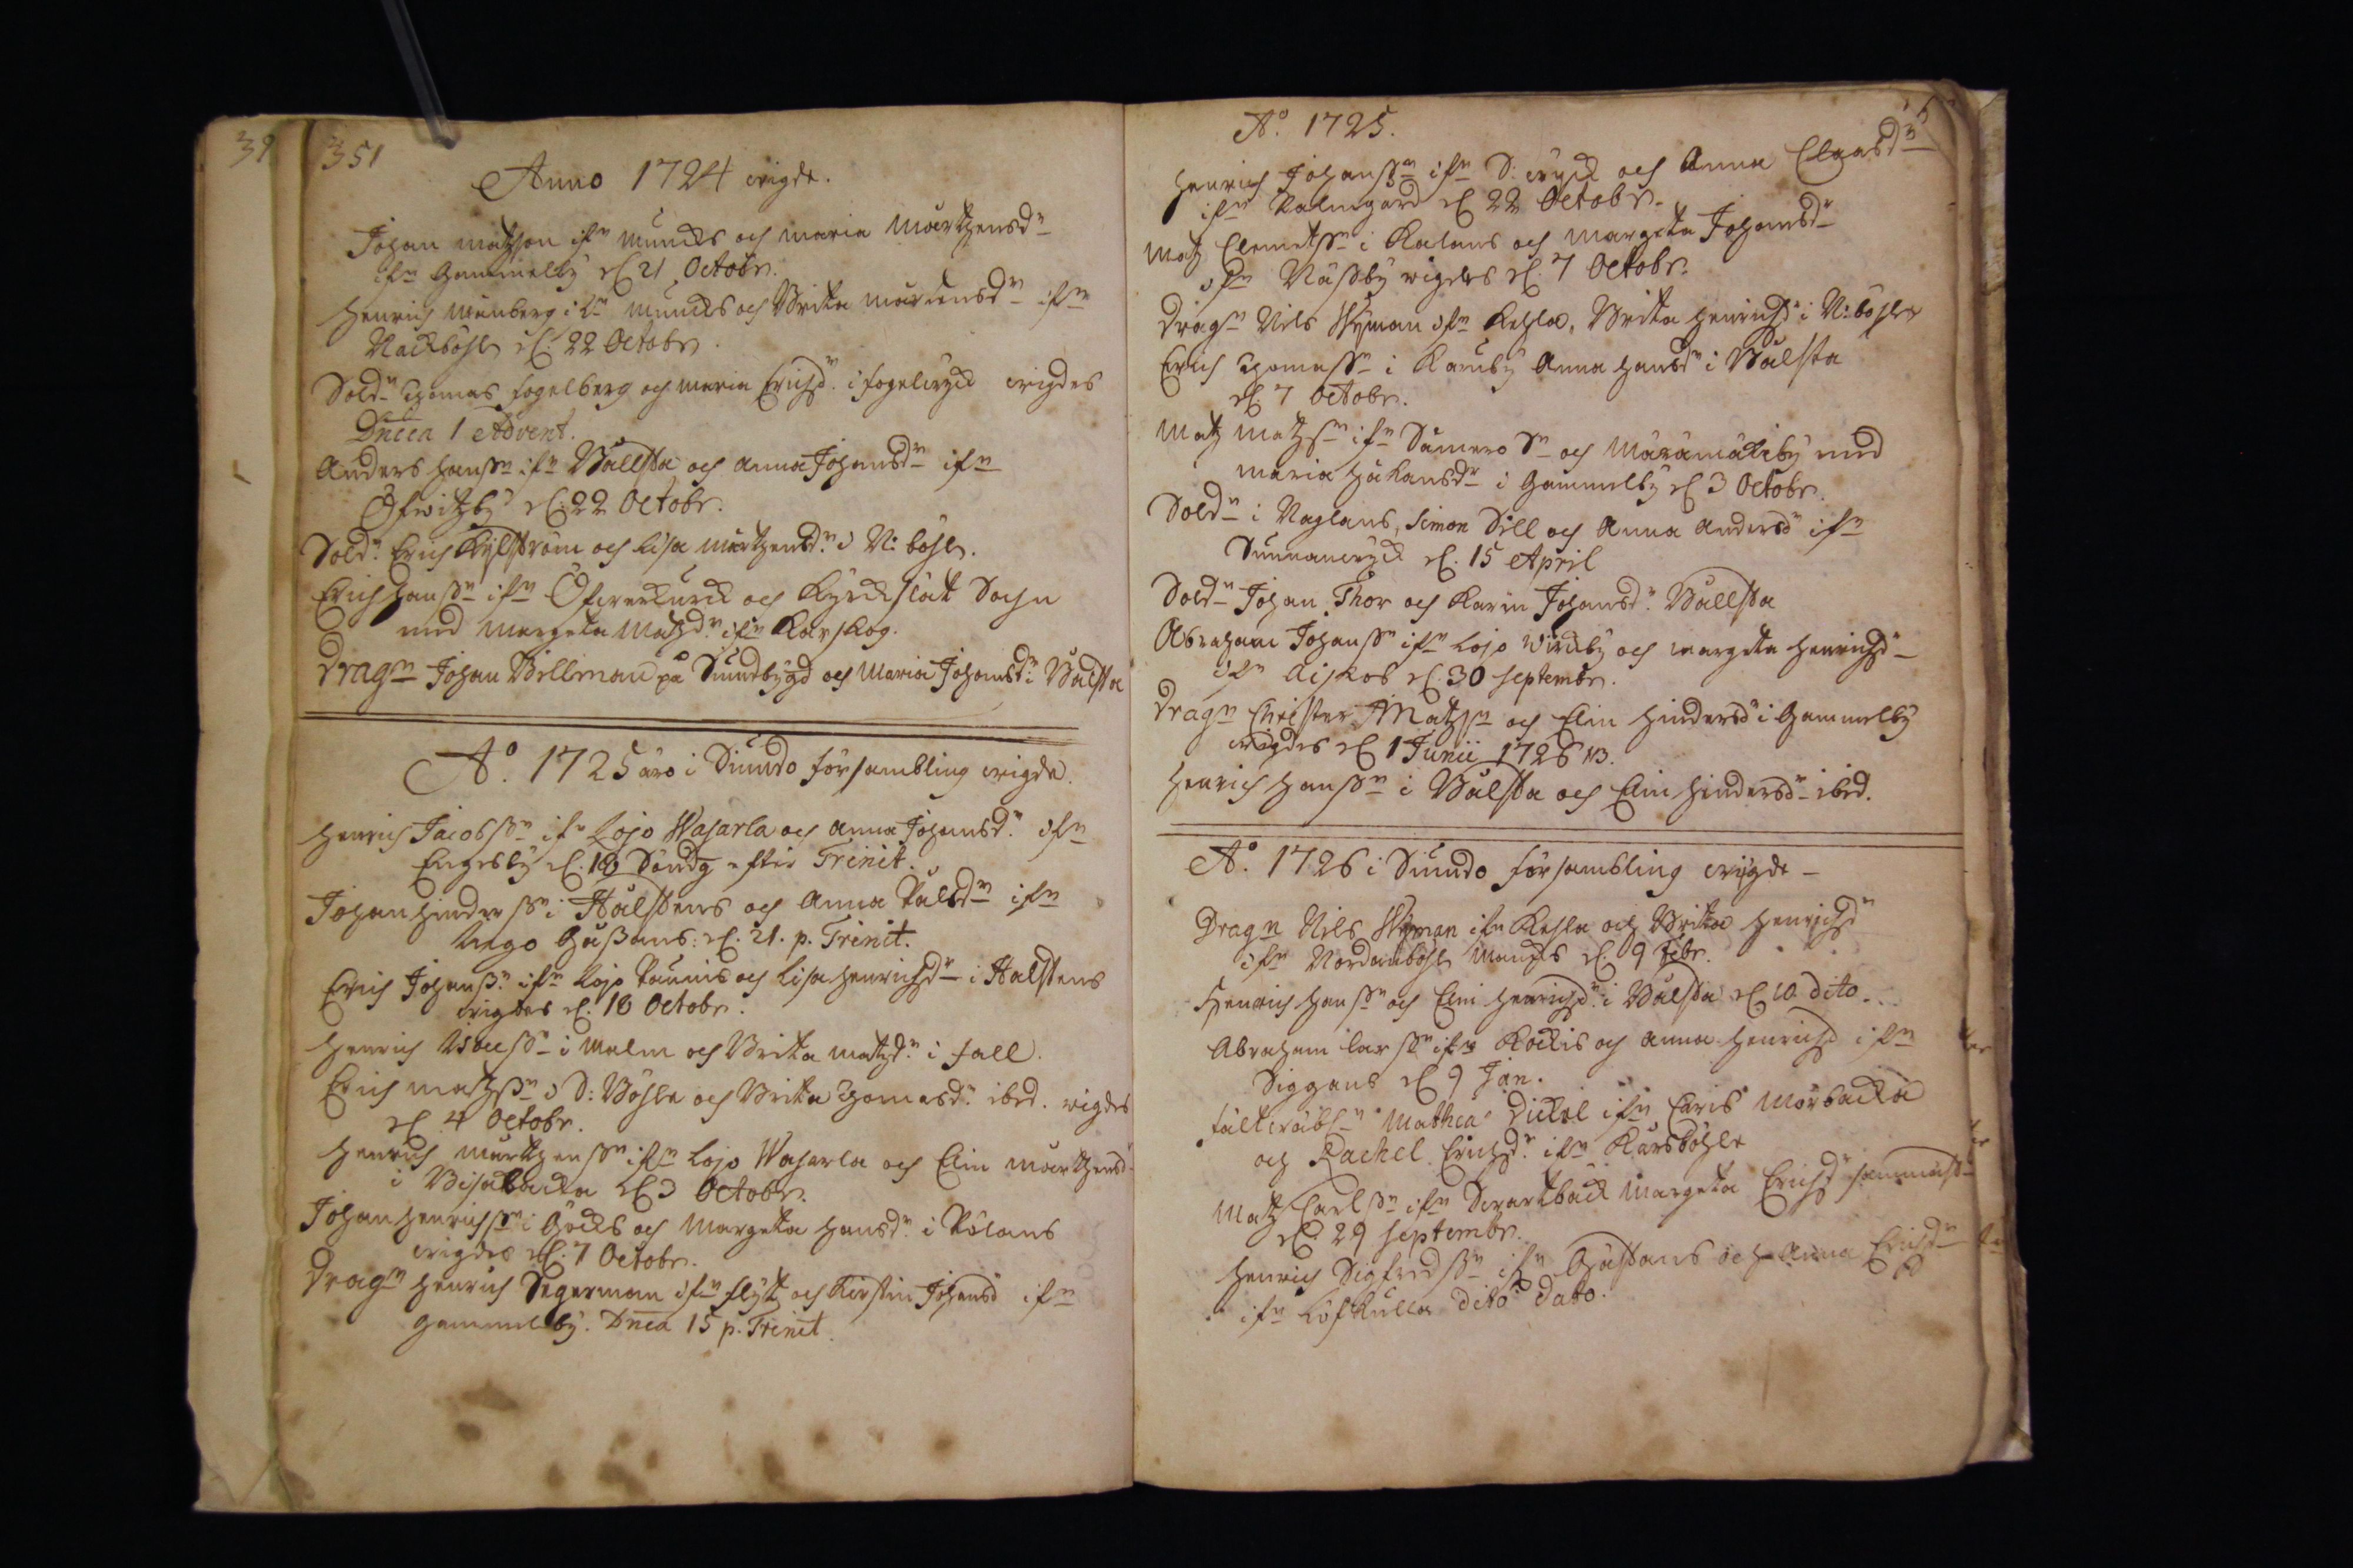 39
351
Anno 1724 wigde.
Johan Matzson ifrn Muncks och Maria Mårtzensdr
ifrn Gammelby d. 21 Octobr.
Henrich Munberg ifrn Muncks och Brita Mårtensdr ifrn
Nackböhle d. 22 Octobr.
Soldn Thomas Fogelberg och Maria Erichsdr i Fogelwyck wigdes
Dncca 1 Advent.
Anders Hanssn ifrn Wallsta och Anna Johansdr ifrn
Öfwitzby d. 22 Octobr.
Soldn Erich Kylström och Lisa Mårtzensdr i N: böhle.
Erich Hanssn ifrn Öfwerkurck och Kyrckslät Sochn
med Margeta Matzdr ifrn Karskog.
Dragn Johan Billman på Sundbygd och Maria Johansdr Walsta
Ao. 1725 äro i Siundo försambling wigde.
Henrich Jacobssn ifrn Lojo Wasarla och Anna Johansdr ifrn
Engesby d. 18 Söndg efter Trinit.
Johan Hinderssn i Hålstens och Anna Pålsdr ifrn
Ingo Gussans: d. 21. p. Trinit.
Erich Johanssn ifrn Lojo Paunis och Lisa Henrichsdr i Halstens
wigdes d. 18 Octobr.
Henrich i Malm och Brita Matzdr i Fall.
Erich Matzssn i S: Böhle och Brita Thomasdr ibid. wigdes
d. 4 Octobr.
Henrich Mårtzenssn ifrn Lojo Wasarla och Elin Mårtzensdr
i Bisabacka d. 3 Octobr.
Johan Henrichssn i Göcks och Margeta Hansdr i Pölans
wigdes d. 7 Octobr.
Dragn Henrich Segerman ifrn Flyt och Kirstin Johansdr ifrn
Gammelby. Dnca 15 p. Trinit.
Ao. 1725.
Henrich Johanssn ifrn S: wyck och Anna Claasdr
ifrn Palmgård d. 22 Octobr.
Matz Clemetssn i Kalans och Margeta Johansdr
ifrn Nässby wigdes d. 7 Octobr.
Dragn Nils Wyman ifrn Kahla, Brita Henrichsdr i N: böhle
Erich Thomassn i Kamby Anna Hansdr i Walsta
d. 7 Octobr.
Matz Matzsn ifrn Sammro Sn och Maramäkiby med
Maria Håkansdr i Gammelby d. 3 Octobr.
Soldn i Naglans, Simon Sill och Anna Andersdr ifrn
Sunnanwyck d. 15 April
Soldn Johan Thor och Karin Johansdr Wallsta
Abraham Johanssn ifrn Lojo Wirckby och Margeta Henrichsdr
ifrn Aiskos d. 30 Septembr.
Dragn Christer Matzsn och Elin Hindersdr i Gammelby
wigdes d. 1 Junii 1726 NB.
Henrich Hanssn i Walsta och Elin Hindersdr ibid.
Ao. 1726 i Siundo församling wigde
Dragn Nils Wyman ifrn Kahla och Brita Henrichsdr
ifrn Nordanböhle Mangs d. 9 Febr.
Henrich Hanssn och Elin Henrichsdr i Walsta d. 10 dito.
Abraham Larssn ifrn Kockis och Anna Henrichsdr ifrn
Siggans d. 9 Jan.
Fältwäbln Mathia Dickel ifrn Caris Mörbacka
och Rachel Erichsdr ifrn Kårsböhle
Matz Carlssn ifrn Swartbäck Margeta Erichsdr sammast.
d. 29 Septembr.
Henrich Sigfredssn ifrn Gustans och Anna Erichsdr
ifrn Löfkulla dito dato.